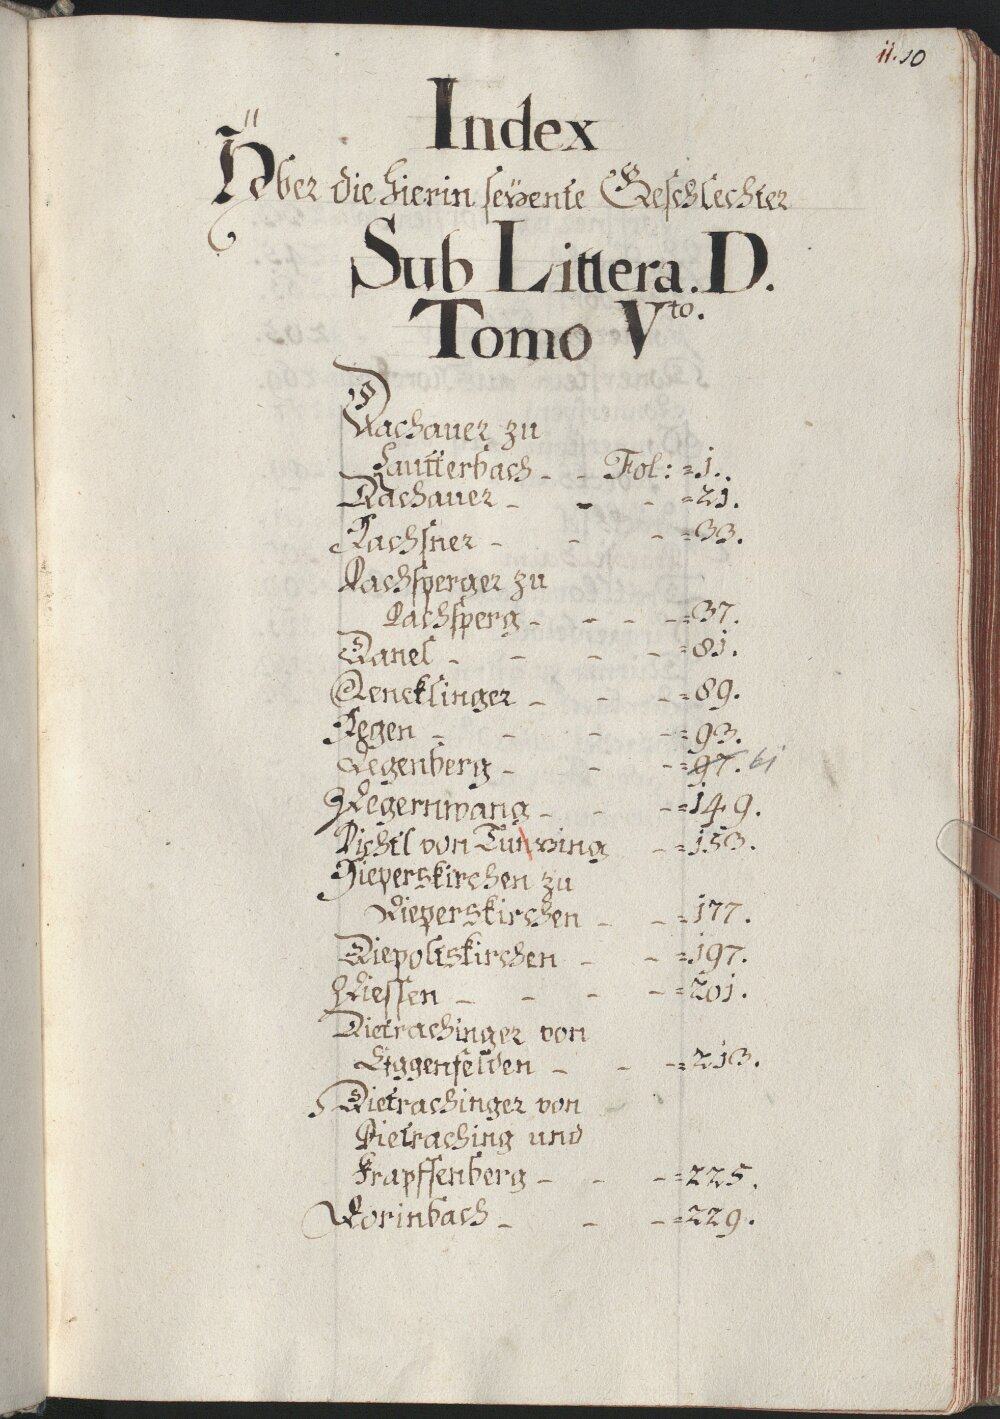 11. 10
Index
Über die hierin seyente Geschlechter
Sub Littera. D.
Tomo Vto.
Dachauer zu
Lautterbach - - Fol: = 1.
Dachauer - - - = 21.
Dachsner - - - = 33.
Dachsperger zu
Dachsperg - - - - = 37.
Danel - - - - = 81.
Dencklinger - - - = 89.
Degen - - - - = 93.
Degenberg - - - = 97. 61
Degernwang - - - = 149.
Dichtl von Tutzing - = 153.
Dieperskirchen zu
Dieperskirchen - - = 177.
Diepoltskirchen - - = 197.
Diessen - - - - = 201.
Dietrachinger von
Eggenfelden - - - = 213.
Dietrachinger von
Dietraching und
Krapffenberg - - - = 225.
Dorinbach - - - = 229.